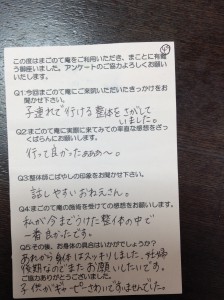 この度はまごのて庵をご利用いただき、まことに有難
う御座いました。アンケートのご協力よろしくお願い
いたします。
Q1:今回まごのて庵にご来訪いただいたきっかけをお
聞かせ下さい。
子連れで行ける整体をさがして
いました。
Q2:まごのて庵に実際に来てみての率直な感想をざっ
くばらんにお願いします。
行って良かったぁぁぁ〜。
Q3:整体師こばやしの印象をお聞かせ下さい。
話しやすいおねえさん。
Q4:まごのて庵の施術を受けての感想をお願いします。
私が今までうけた整体の中で
一番良かったです。
Q5:その後、お身体の具合はいかがでしょうか?
あれから身体はスッキリしました。妊婦
後期なのでまたお願いしたいです。
ご協力ありがとうございました。
子供がギャーピーさわいですいませんでした。